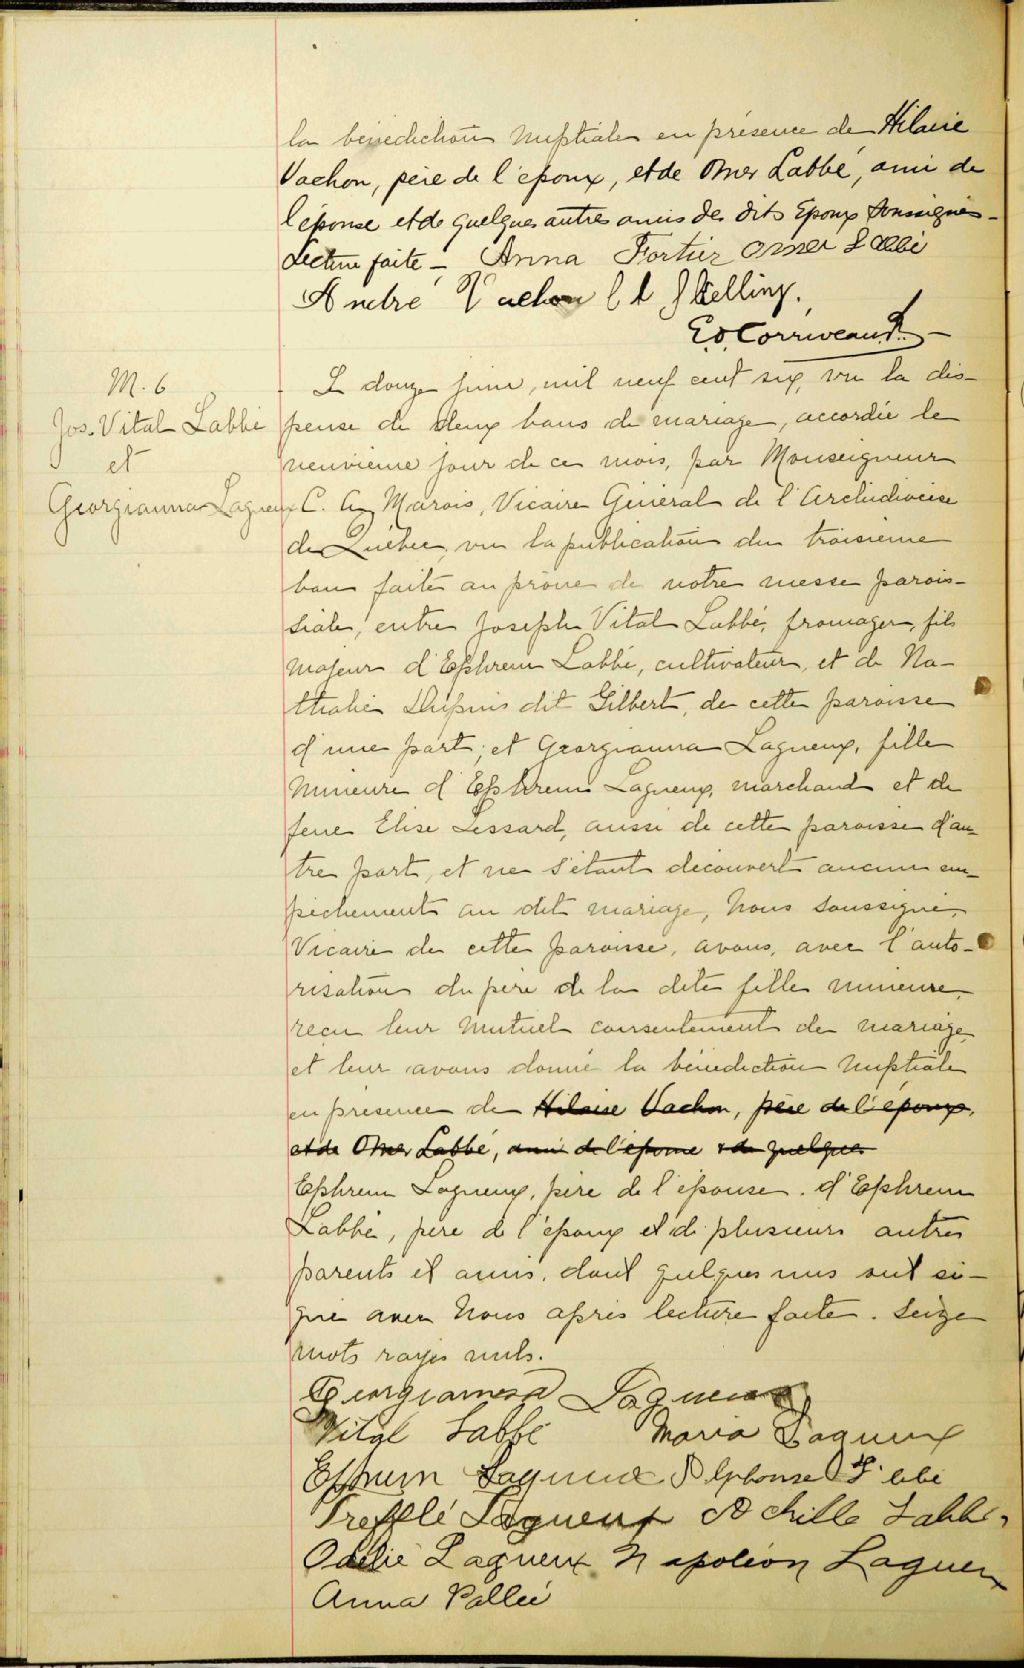 la bénédiction nuptiale en présence de Hilaire
Vachon, père de l'époux, et de Omer Labbé, ami de
l'épouse et de quelques autres amis des dits Epoux soussignés -
Lecture faite - Anna Fortier Omer Labbé
André Vachon
E. O. Corriveau Ptr. -
M. 6
Jos. Vital Labbé
et
Georgianna Lagueux
L douze juin, mil neuf cent six, vu la dis-
pense de deux bans de mariage, accordée le
neuvième jour de ce mois, par Monseigneur
C. A. Marois, Vicaire Général de l'Archidiocèse
de Québec, vu la publication du troisième
ban faite au prône de notre messe parois-
siale, entre Joseph Vital Labbé, fromager, fils
majeur d'Ephrem Labbé, cultivateur, et de Na-
thalie Dupuis dit Gilbert, de cette paroisse
d'une part; et Georgianna Lagueux, fille
mineure d'Ephrem Lagueux, marchand et de
feue Elise Lessard, aussi de cette paroisse d'au-
tre part, et ne s'étant découvert aucun em-
pêchement au dit mariage, Nous soussigné,
Vicaire de cette paroisse, avons, avec l'auto-
risation du père de la dite fille mineure,
reçu leur mutuel consentement de mariage,
et leur avons donné la bénédiction nuptiale
en présence de Hilaire Vachon, père de l'époux,
et de Omer Labbé, ami de l'épouse & de quelques
Ephrem Lagueux, père de l'épouse. d'Ephrem
Labbé, père de l'époux et de plusieurs autres
parents et amis, dont quelques uns ont si-
gné avec Nous après lecture faite. Seize
mots rayés nuls.
Georgianna Lagueux
Vital Labbé Maria Lagueux
Ephrem Lagueux Alphonse Labbé
Trefflé Lagueux Achille Labbé,
Odélie Lagueux Napoléon Lagueux
Anna Vallée